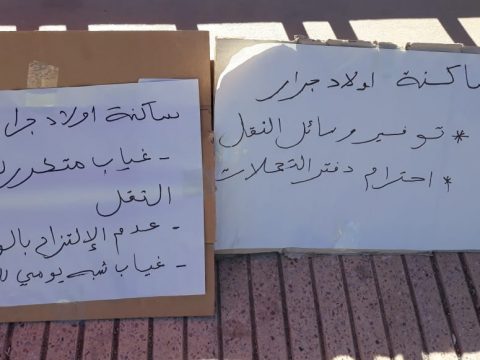 ساكنة اولاد جرار
* توفير وسائل النقل
* احترام دفتر التحملات
ساكنة اولاد جرا
- غياب متكرر
النقل
- عدم الإلتزام
- غياب شبه يومي